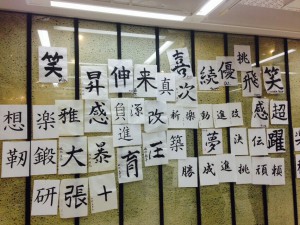 笑 昇 伸 来 真 喜 次 続 優 挑 飛 笑
想 楽 雅 感 負 源 進 改 新 樂 動 進 技 感 超
靭 鍛 大 暴 育 王 築 夢 決 伝 躍
研 張 十 勝 成 進 挑 頑 頼